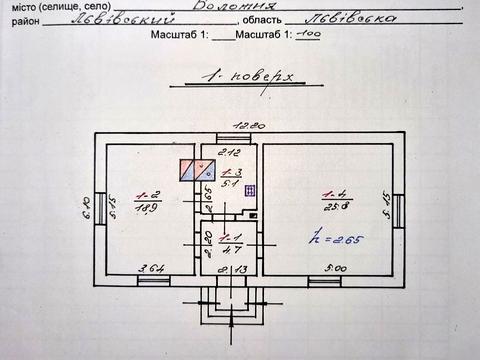 місто (селище, село) Волотня
район Львівський, область Львівська
Масштаб 1: ____ Масштаб 1: 100
1-поверх
12.20
2.12
1-2
18,9
1-3
5.1
1-4
25.8
6.10
5.15
2.65
5.15
h=2.65
1-1
4,7
2.20
3.64
2.13
5.00